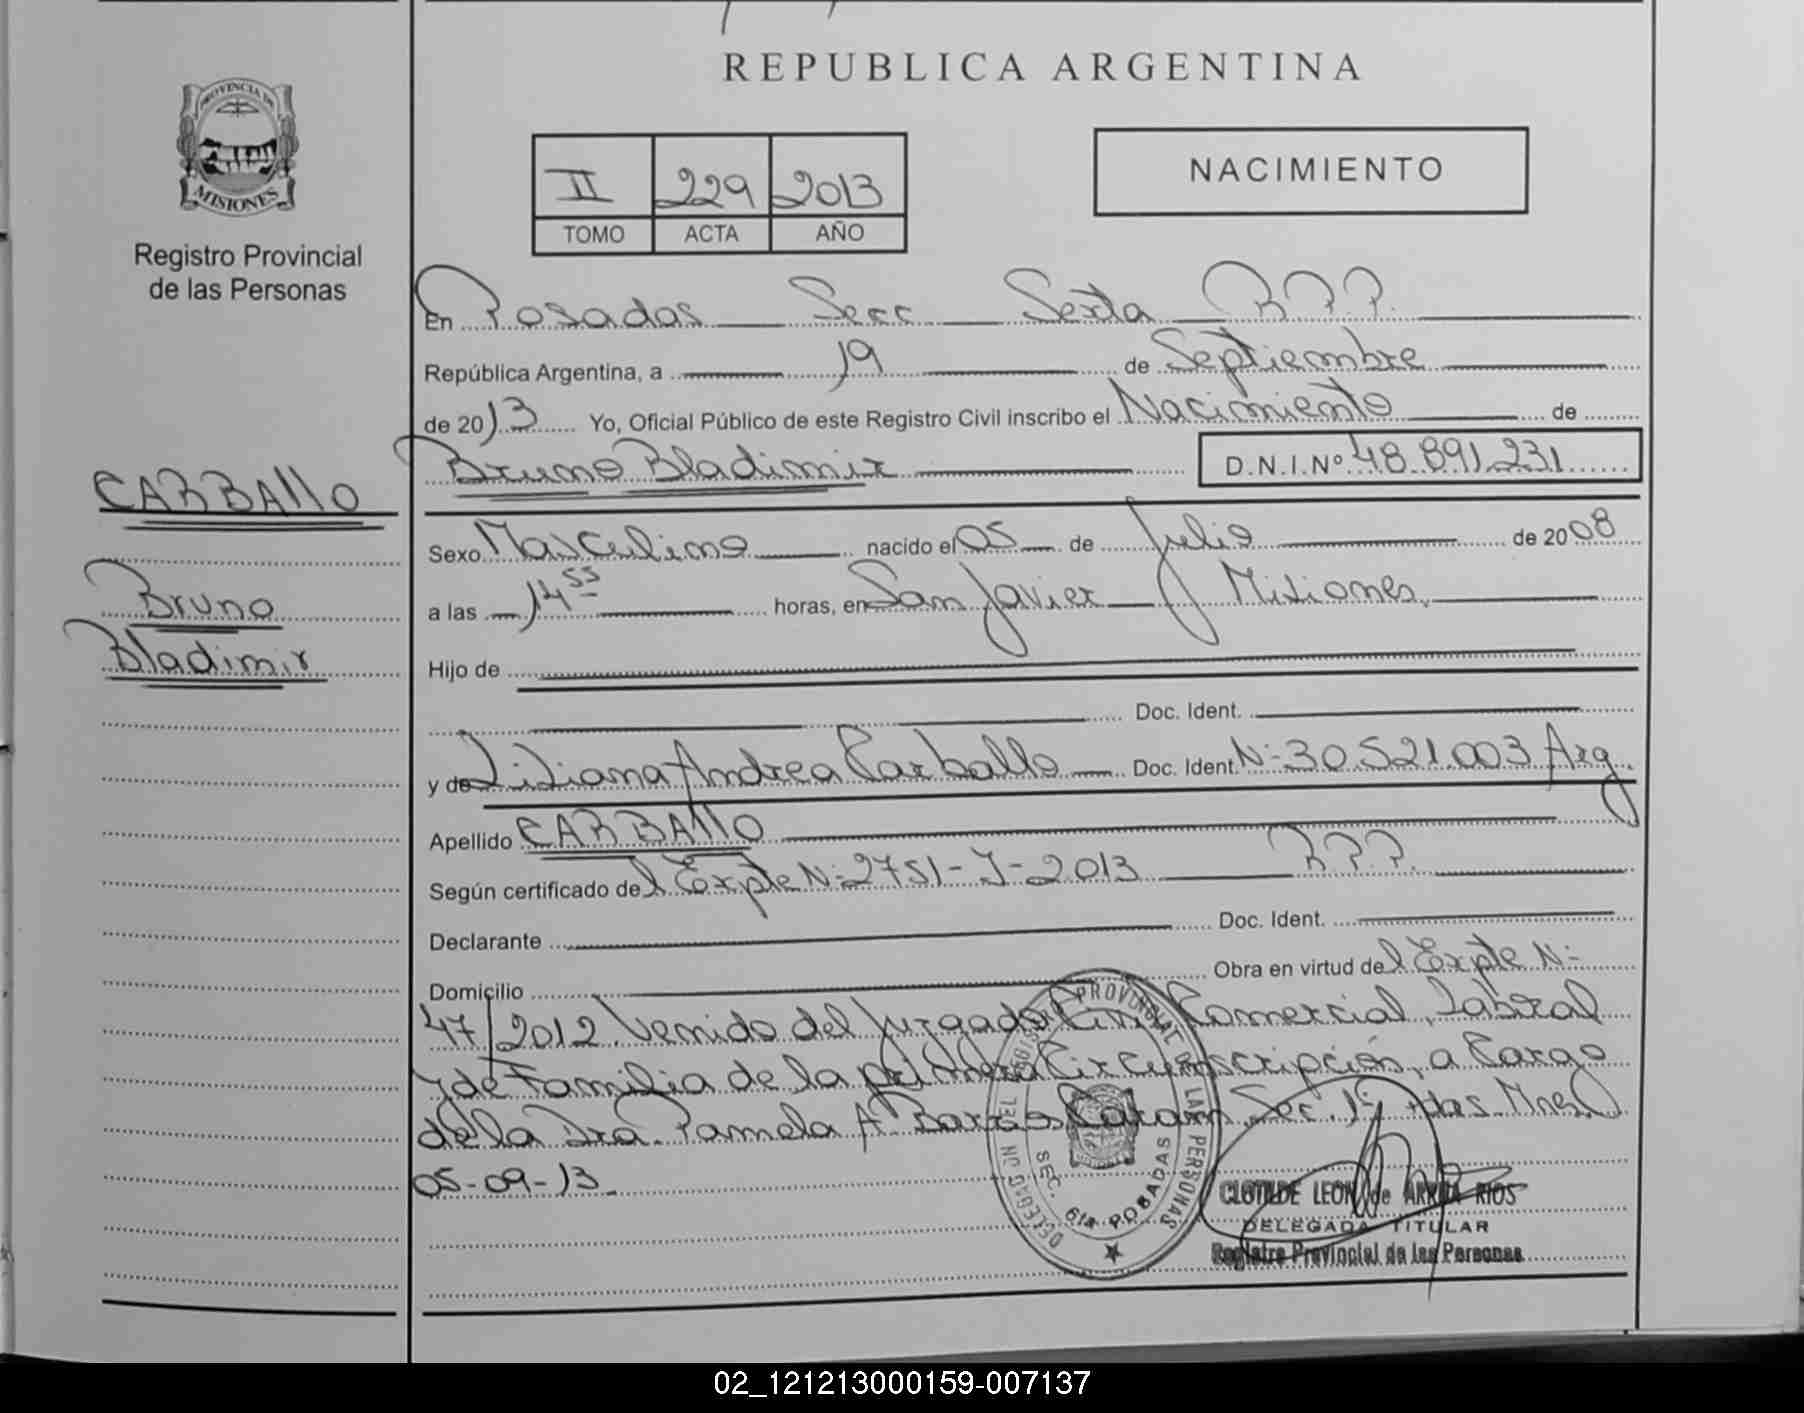 REPUBLICA ARGENTINA
PROVINCIA DE
MISIONES
Registro Provincial
de las Personas
NACIMIENTO
II 229 2013
TOMO ACTA AÑO
En Posadas Secc Sexta R.P.P.
República Argentina, a 19 de Septiembre
de 2013 Yo, Oficial Público de este Registro Civil inscribo el Nacimiento de
Bruno Bladimir D.N.I.Nº 48.891.231
CARBALLO
Bruno
Bladimir
Sexo Masculino nacido el 05 de Julio de 2008
a las 14 55 horas, en San Javier Misiones,
Hijo de
Doc. Ident.
y de Liliana Andrea Carballo Doc. Ident. Nº 30.521.003 Arg.
Apellido CARBALLO
Según certificado del Expte Nº 2751-J-2013 R.P.P.
Declarante Doc. Ident.
Domicilio Obra en virtud del Expte Nº
47/2012 Venido del Jurgado Civil Comercial, Laboral
y de Familia de la primera Circunscripción, a Cargo
de la Dra. Pamela A Barrios Caram, Sec. 1ª, Pdas. Mnes.
05-09-13.
DELEGACION DEL REGISTRO PROVINCIAL DE LAS PERSONAS
SEC. 6ta POSADAS
CLOTILDE LEON de ARRUA RIOS
DELEGADA TITULAR
Registro Provincial de las Personas
02_121213000159-007137